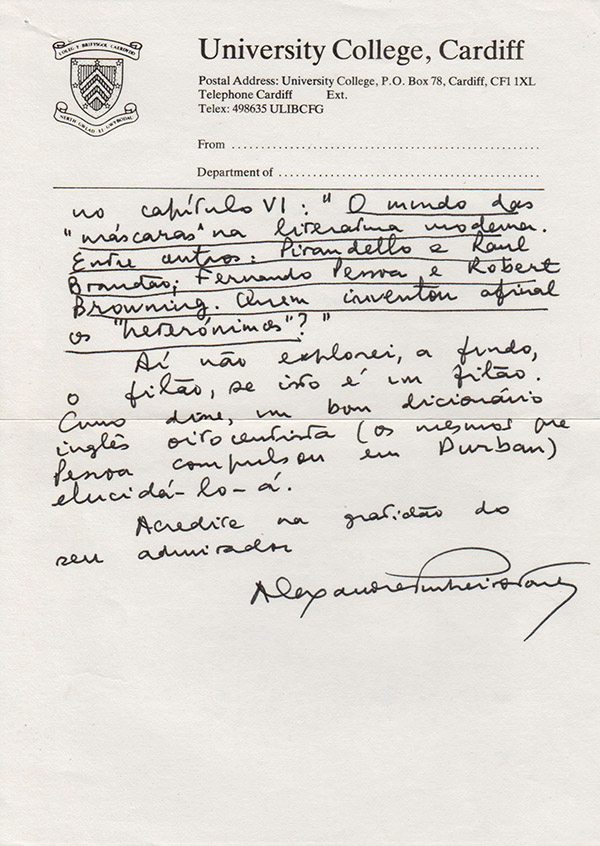 COLEG Y BRIFYSGOL CAERDYDD
NERTH GWLAD EI GWYBODAU
University College, Cardiff
Postal Address: University College, P.O. Box 78, Cardiff, CF1 1XL
Telephone Cardiff Ext.
Telex: 498635 ULIBCFG
From
Department of
no capítulo VI: "O mundo das
"máscaras" na literatura moderna.
Entre outros: Pirandello e Raul
Brandão; Fernando Pessoa e Robert
Browning. Quem inventou afinal
os "heterónimos"?"
Aí não explorei, a fundo,
o filão, se isto é um filão.
Como disse, um bom dicionário
inglês oitocentista (os mesmos que
Pessoa compulsou em Durban)
elucidá-lo-á.
Acredite na gratidão do
seu admirador
Alexandre Pinheiro Torres